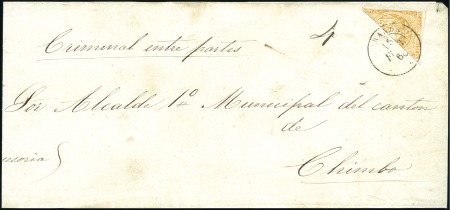 Criminal entre partes 4
Sor Alcalde 1º Municipal del canton
de
Chimbo